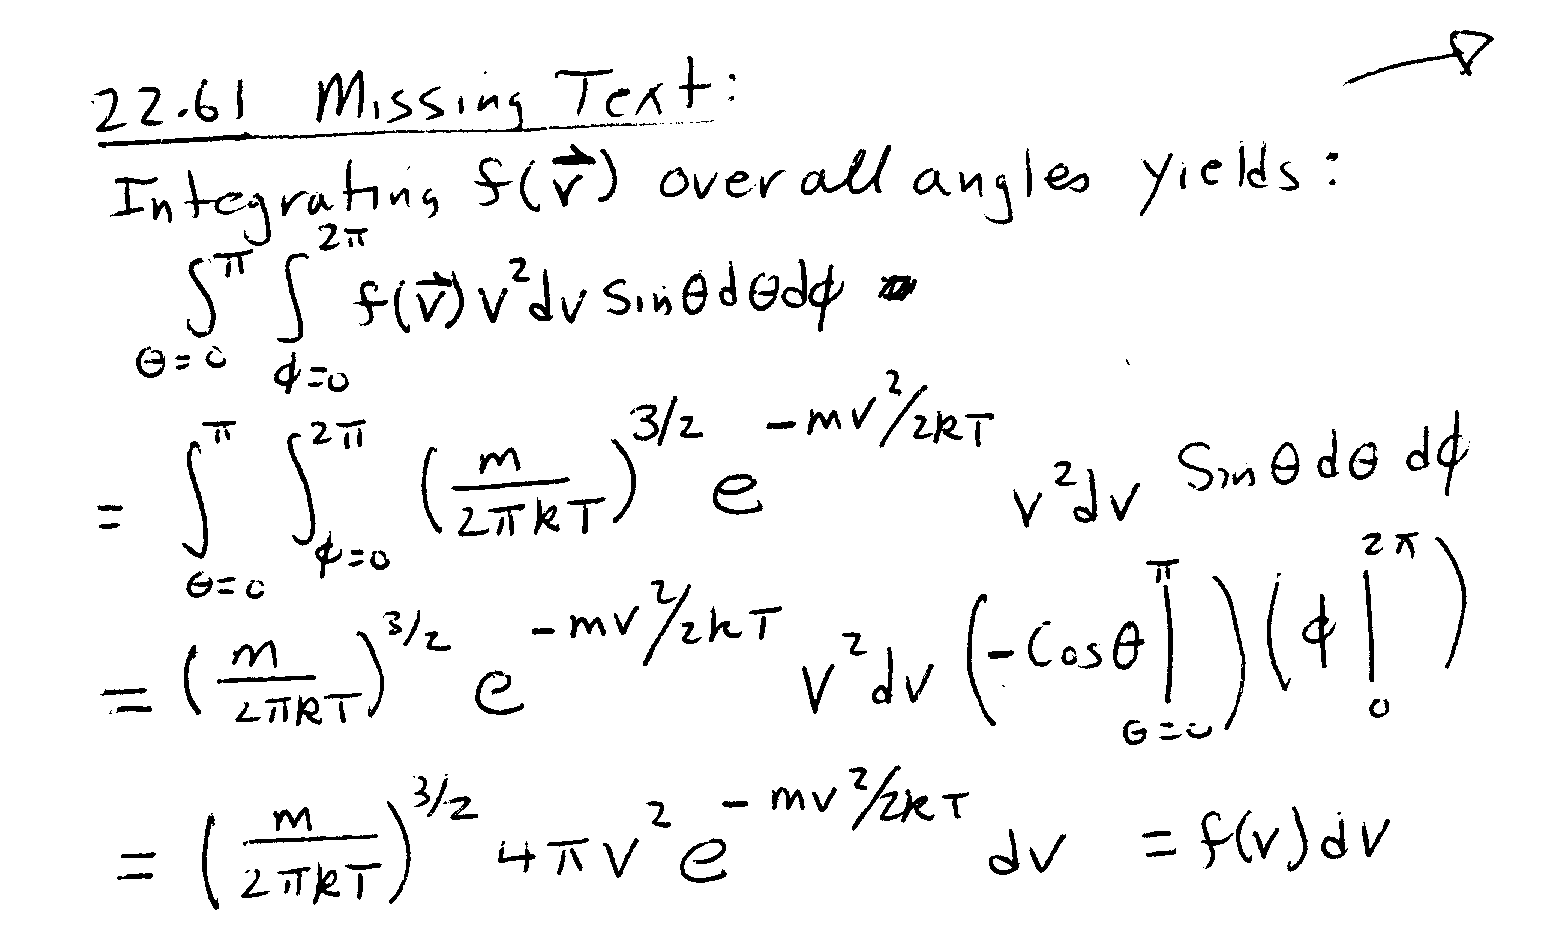 22.61 Missing Text:
Integrating f(v⃗) over all angles yields:
∫_{θ=0}^{π} ∫_{φ=0}^{2π} f(v⃗) v²dv Sinθdθdφ
= ∫_{θ=0}^{π} ∫_{φ=0}^{2π} (m/2πkT)^{3/2} e^{-mv²/2kT} v²dv Sinθdθ dφ
= (m/2πkT)^{3/2} e^{-mv²/2kT} v²dv (-Cosθ|_{θ=0}^{π})(φ|_{0}^{2π})
= (m/2πkT)^{3/2} 4πv² e^{-mv²/2kT} dv = f(v)dv